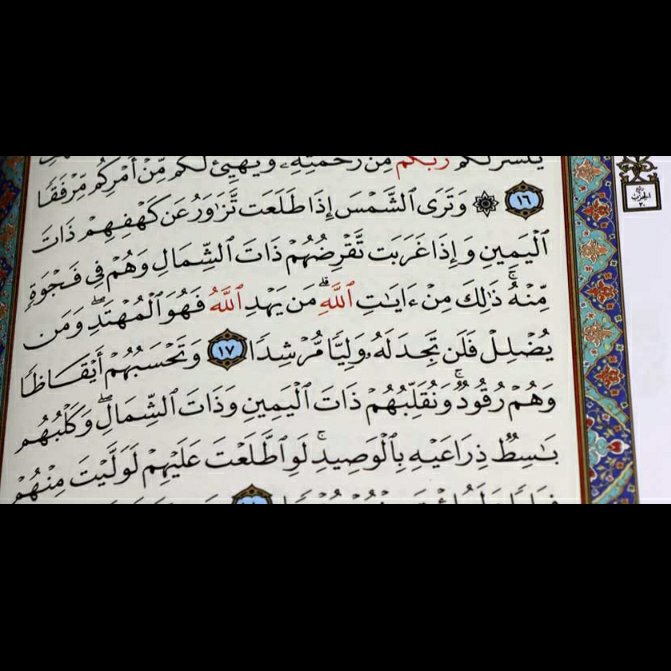 يَنشُرْ لَكُمْ رَبُّكُم مِّن رَّحْمَتِهِۦ وَيُهَيِّئْ لَكُم مِّنْ أَمْرِكُم مِّرْفَقًا
١٦ ۞ وَتَرَى ٱلشَّمْسَ إِذَا طَلَعَت تَّزَٰوَرُ عَن كَهْفِهِمْ ذَاتَ
ٱلْيَمِينِ وَإِذَا غَرَبَت تَّقْرِضُهُمْ ذَاتَ ٱلشِّمَالِ وَهُمْ فِى فَجْوَةٍ
مِّنْهُ ۚ ذَٰلِكَ مِنْ ءَايَٰتِ ٱللَّهِ ۗ مَن يَهْدِ ٱللَّهُ فَهُوَ ٱلْمُهْتَدِ ۖ وَمَن
يُضْلِلْ فَلَن تَجِدَ لَهُۥ وَلِيًّا مُّرْشِدًا ١٧ وَتَحْسَبُهُمْ أَيْقَاظًا
وَهُمْ رُقُودٌ ۚ وَنُقَلِّبُهُمْ ذَاتَ ٱلْيَمِينِ وَذَاتَ ٱلشِّمَالِ ۖ وَكَلْبُهُم
بَٰسِطٌ ذِرَاعَيْهِ بِٱلْوَصِيدِ ۚ لَوِ ٱطَّلَعْتَ عَلَيْهِمْ لَوَلَّيْتَ مِنْهُمْ